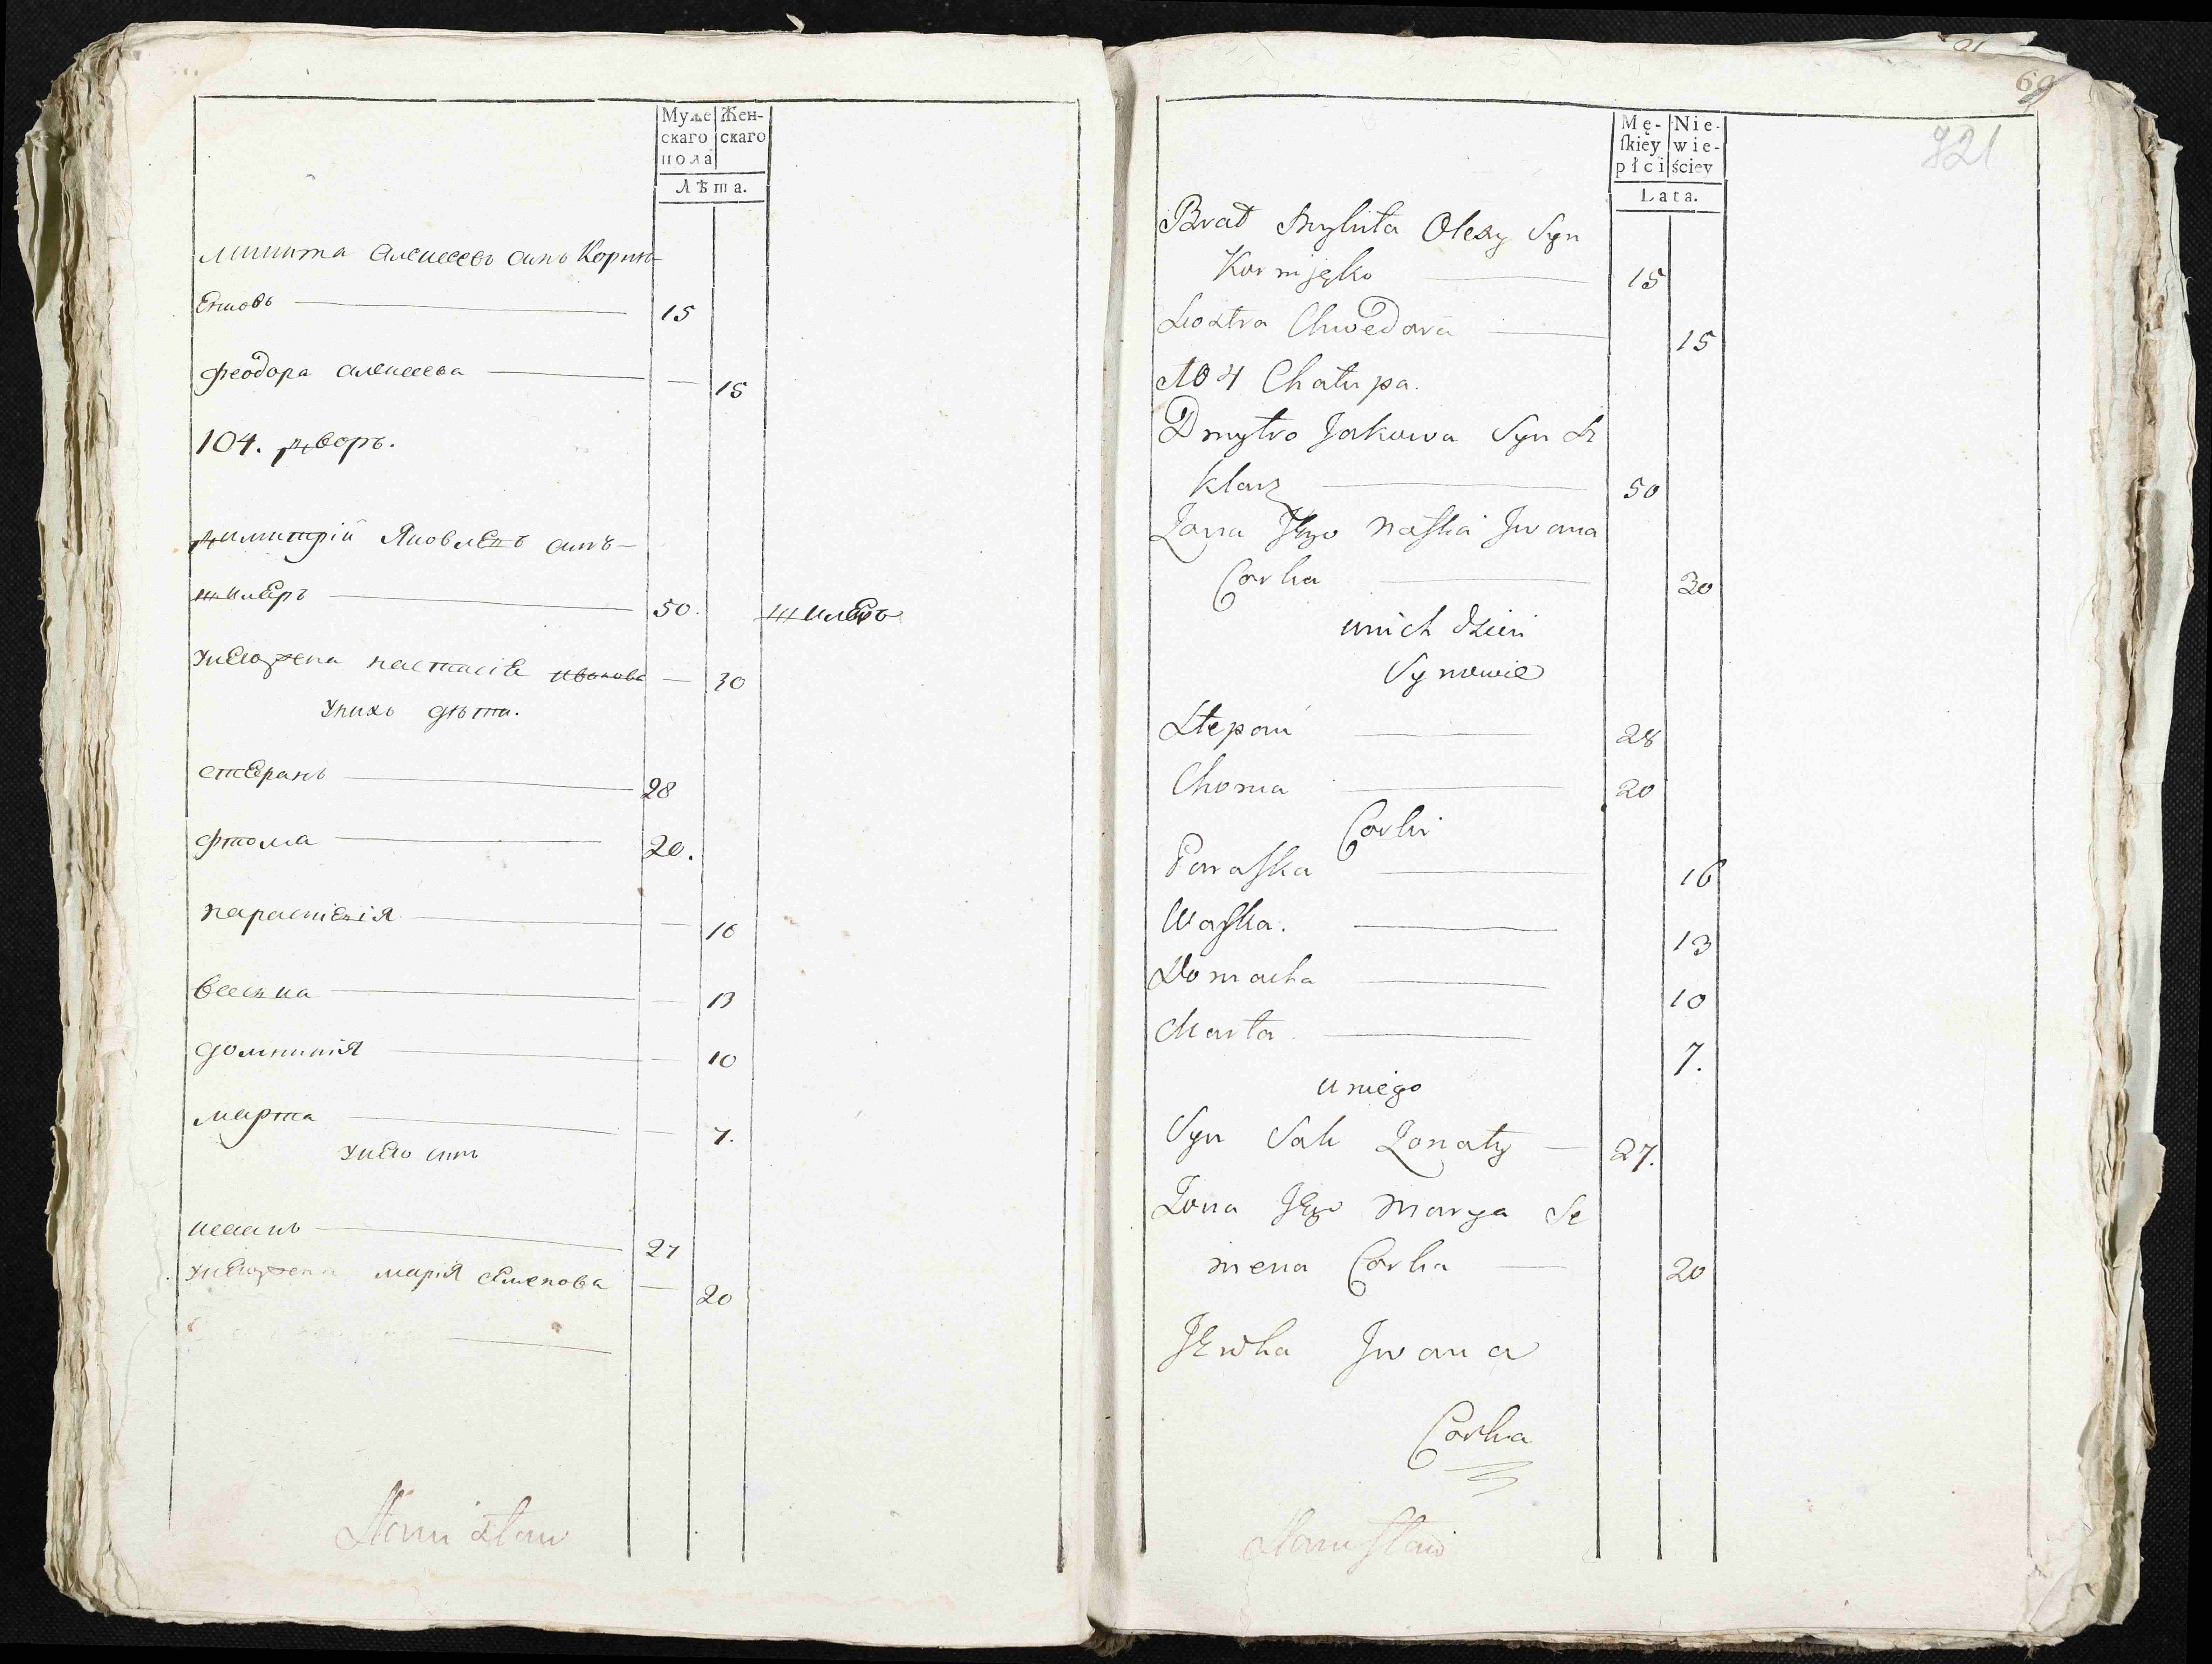 Муже
скаго
пола
Жен-
скаго
Лѣта.
Микита Алексеевъ синъ Корние-
енковъ 15
Феодора Алексеева — 15
104. дворъ.
Димитрій Яковлевъ синъ
шкляръ 50. шкляръ
Унегожена настасіа Иванова — 30
Унихъ дѣти.
Стефанъ 28
Фтома 20.
Параскевія — 16
Васька — 13
Домникія — 10
Марта — 7.
Унего синъ
Исаакъ 27
Унегожена марія Семенова — 20
Stanisław
69
721
Mę-
ſkiey
płci
Nie-
wie-
ściey
Lata.
Brat Mykita Olexy Syn
Kornijęko 15
Siostra Chwedora 15
104 Chałupa.
Dmytro Jakowa Syn Sz
klarz 50
Żona Jego Naſtka Jwana
Corka 30
unich dzieci
Synowie
Stepan 28
Choma 20
Corki
Paraſka 16
Waſka. 13
Domacha 10
Marta. 7.
uniego
Syn Sak Żonaty — 27.
Żona Jego Marya Se
mena Corka — 20
Jewka Jwana
Corka
Staniſław